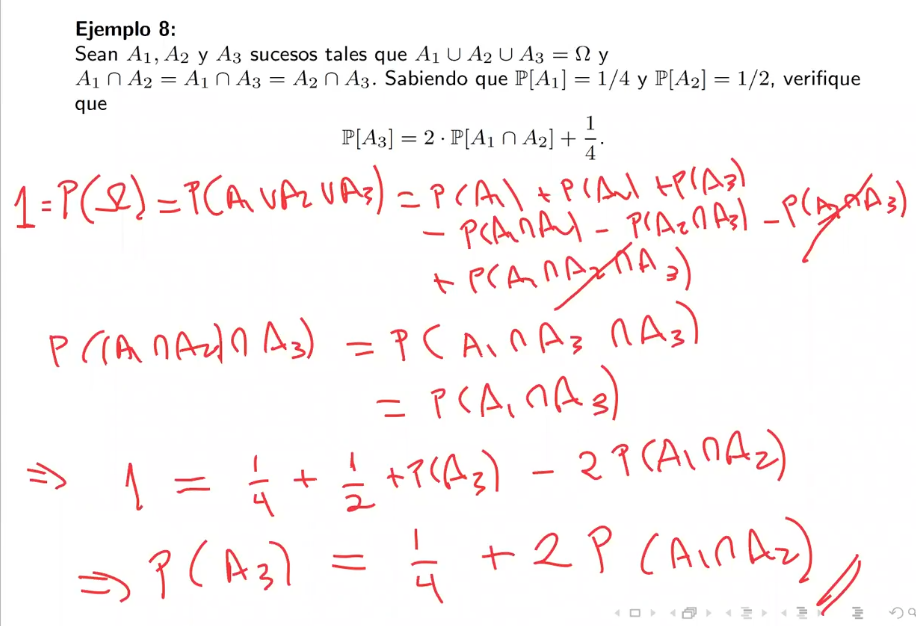 Ejemplo 8:
Sean A₁, A₂ y A₃ sucesos tales que A₁ ∪ A₂ ∪ A₃ = Ω y
A₁ ∩ A₂ = A₁ ∩ A₃ = A₂ ∩ A₃. Sabiendo que ℙ[A₁] = 1/4 y ℙ[A₂] = 1/2, verifique
que
ℙ[A₃] = 2 · ℙ[A₁ ∩ A₂] + 1/4.
1 = P(Ω) = P(A₁ ∪ A₂ ∪ A₃) = P(A₁) + P(A₂) + P(A₃)
− P(A₁ ∩ A₂) − P(A₂ ∩ A₃) − P(A₁ ∩ A₃)
+ P(A₁ ∩ A₂ ∩ A₃)
P((A₁ ∩ A₂) ∩ A₃) = P(A₁ ∩ A₃ ∩ A₃)
= P(A₁ ∩ A₃)
⇒ 1 = 1/4 + 1/2 + P(A₃) − 2P(A₁ ∩ A₂)
⇒ P(A₃) = 1/4 + 2P(A₁ ∩ A₂)